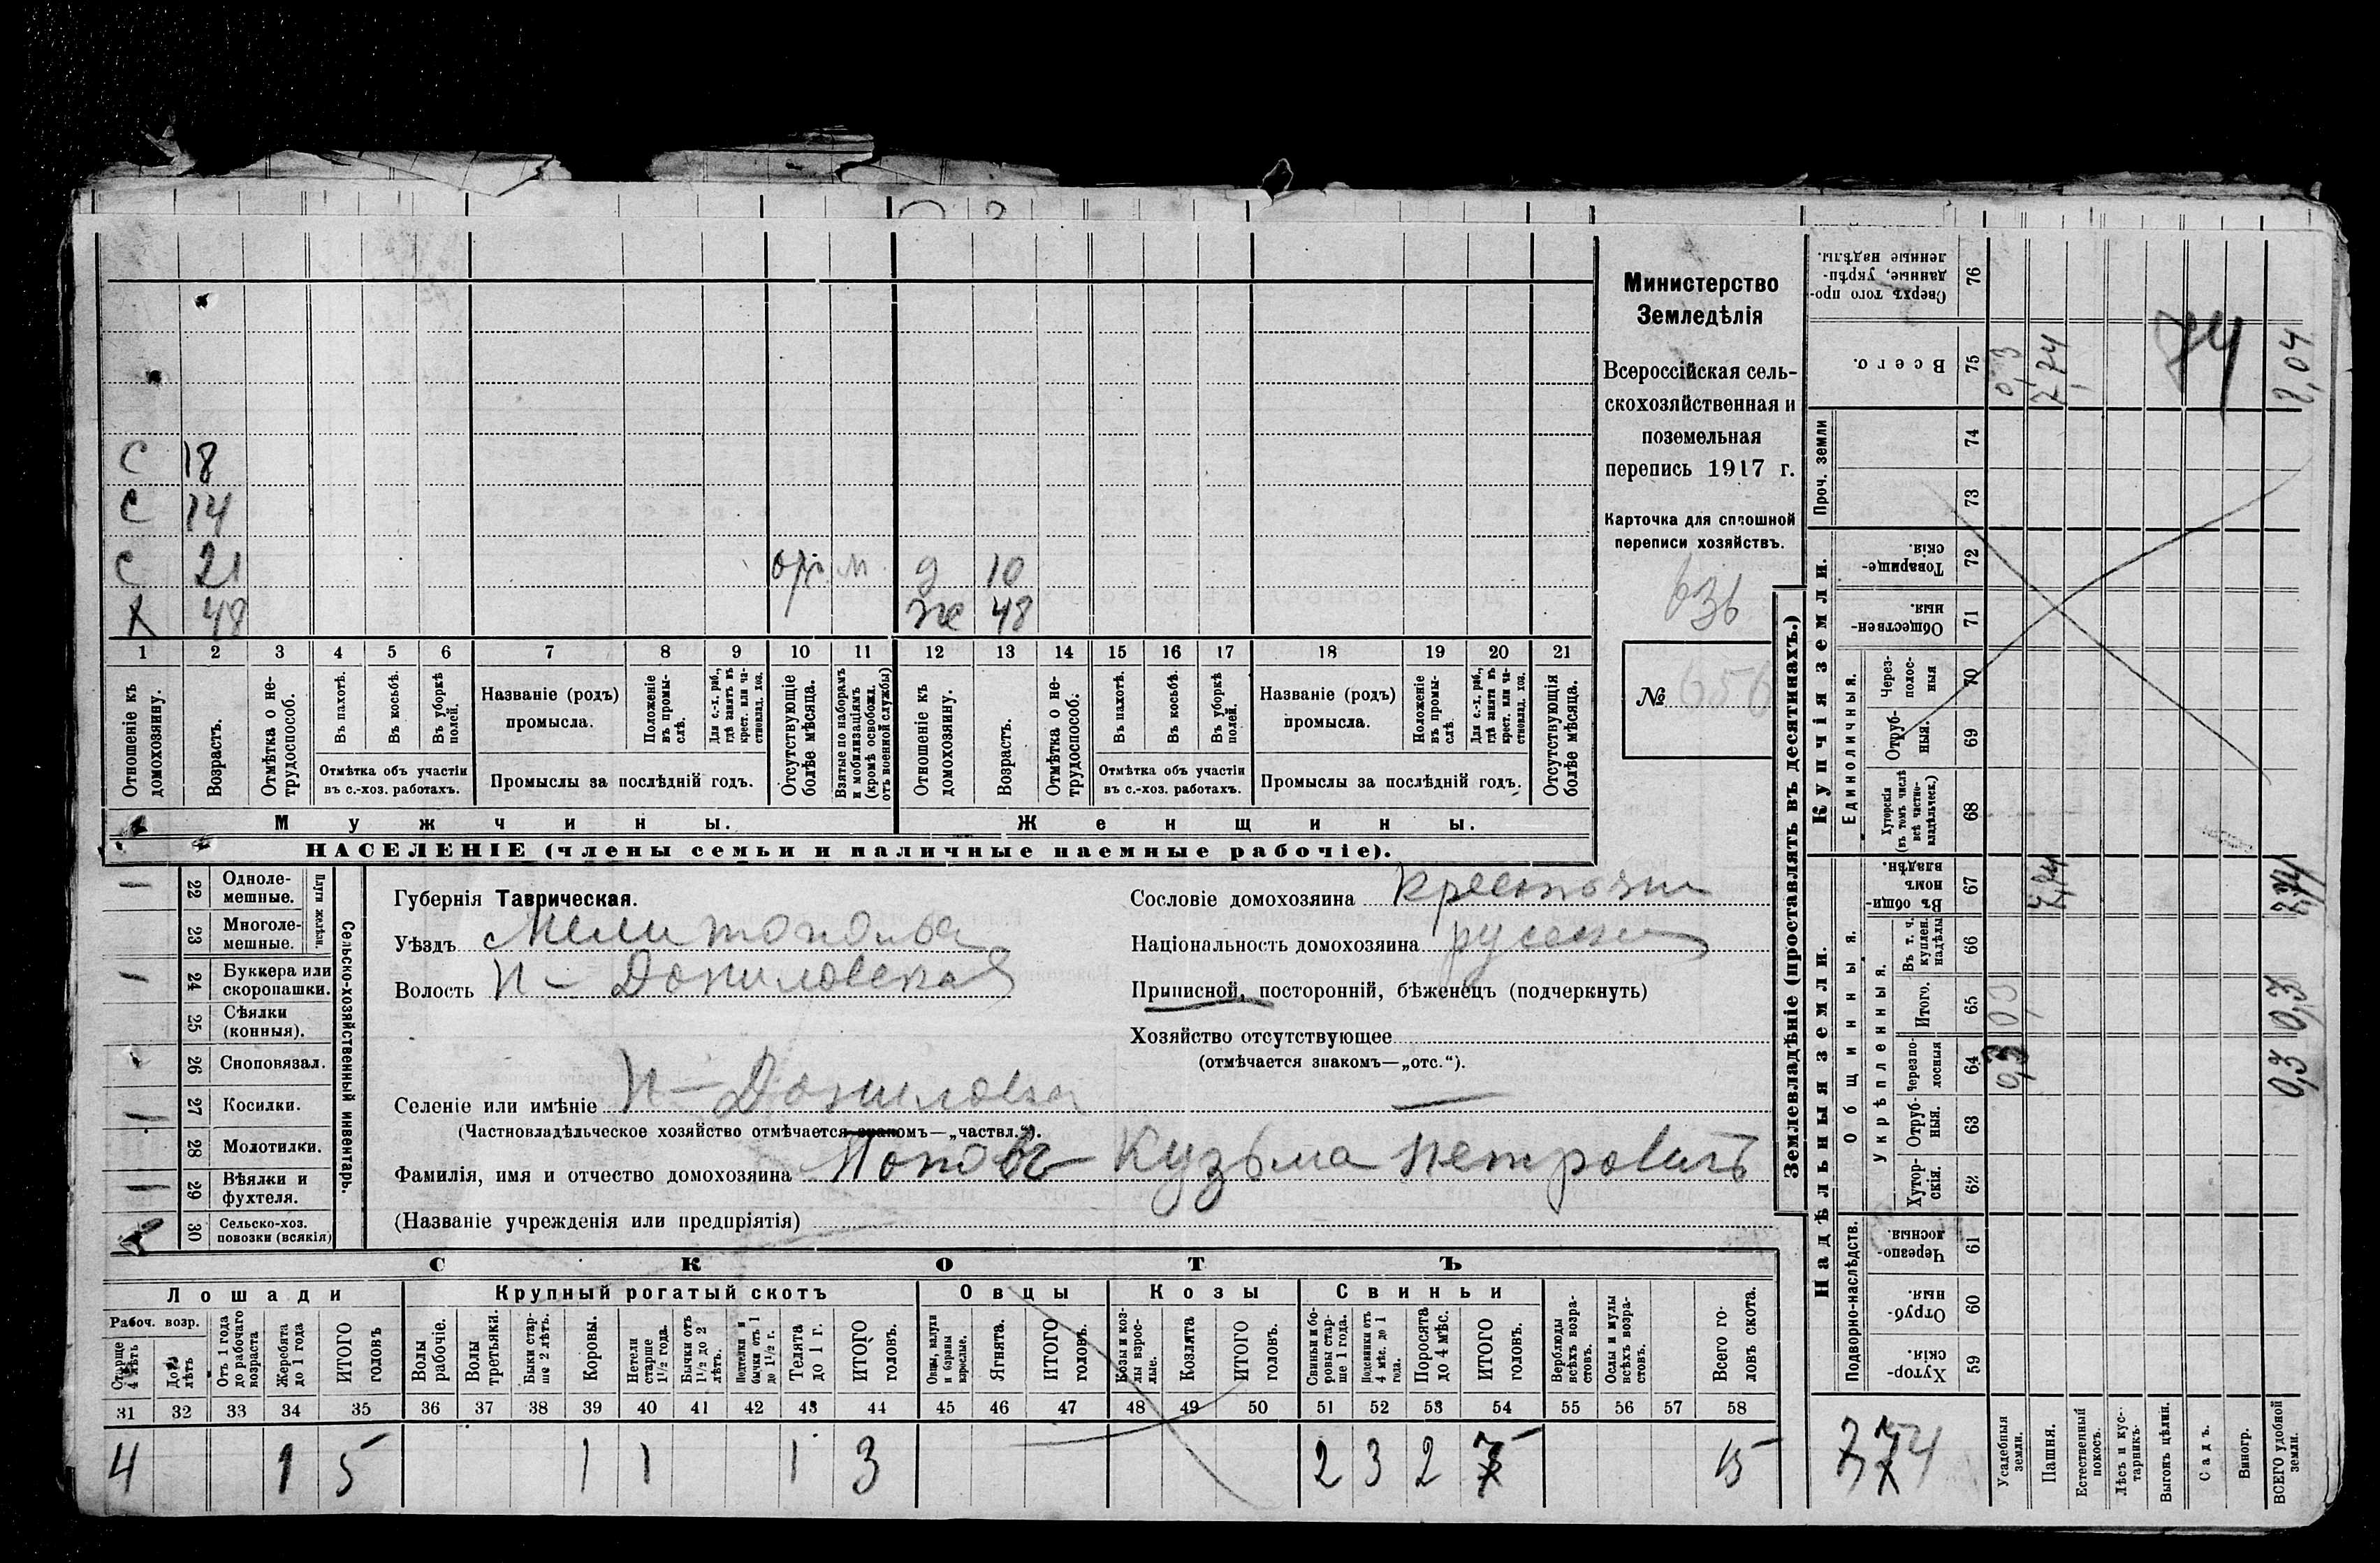 С 18
С 14
С 21 М. д 10
Х 48 же 48
1 2 3 4 5 6 7 8 9 10 11 12 13 14 15 16 17 18 19 20 21
Отношеніе къ домохозяину.
Возрастъ.
Отмѣтка о не-трудоспособ.
Въ пахотѣ.
Въ косьбѣ.
Въ уборкѣ полей.
Отмѣтка объ участіи
въ с.-хоз. работахъ.
Названіе (родъ)
промысла.
Положеніе въ промы-слѣ.
Для с.-х. раб., гдѣ занятъ въ крест. или ча-стновлад. хоз.
Промыслы за послѣдній годъ.
Отсутствующіе болѣе мѣсяца.
Взятые по наборамъ и мобилизаціямъ (кромѣ освобожд. отъ военной службы)
Отношеніе къ домохозяину.
Возрастъ.
Отмѣтка о не-трудоспособ.
Въ пахотѣ.
Въ косьбѣ.
Въ уборкѣ полей.
Отмѣтка объ участіи
въ с.-хоз. работахъ.
Названіе (родъ)
промысла.
Положеніе въ промы-слѣ.
Для с.-х. раб., гдѣ занята въ крест. или ча-стновлад. хоз.
Промыслы за послѣдній годъ.
Отсутствующія болѣе мѣсяца.
Мужчины.
Женщины.
НАСЕЛЕНІЕ (члены семьи и наличные наемные рабочіе).
Министерство
Земледѣлія
Всероссійская сель-
скохозяйственная и
поземельная
перепись 1917 г.
Карточка для сплошной
переписи хозяйствъ.
636
№ 656
22 Одноле-мешные.
23 Многоле-мешные.
Плуги желѣзн.
24 Буккера или скоропашки.
25 Сѣялки (конныя).
26 Сноповязал.
27 Косилки.
28 Молотилки.
29 Вѣялки и фухтеля.
30 Сельско-хоз. повозки (всякія)
Сельско-хозяйственный инвентарь.
Губернія Таврическая.
Уѣздъ Мелитополь
Волость Н – Даниловская
Селеніе или имѣніе Н – Даниловка
(Частновладѣльческое хозяйство отмѣчается знакомъ—„частвл.“).
Фамилія, имя и отчество домохозяина Поповъ Кузьма Петровичъ
(Названіе учрежденія или предпріятія)
Сословіе домохозяина крестьянин
Національность домохозяина русский
Приписной, посторонній, бѣженецъ (подчеркнуть)
Хозяйство отсутствующее
(отмѣчается знакомъ—„отс.“).
СКОТЪ
Лошади
Крупный рогатый скотъ
Овцы
Козы
Свиньи
Рабоч. возр.
Старше 4 лѣтъ
До 4 лѣтъ
Отъ 1 года до рабочаго возраста
Жеребята до 1 года
ИТОГО головъ
Волы рабочіе.
Волы третьяки.
Быки стар-ше 2 лѣтъ.
Коровы.
Нетели старше 1½ года.
Бычки отъ 1½ до 2 лѣтъ.
Подтелки и бычки отъ 1 до 1½ г.
Телята до 1 г.
ИТОГО головъ.
Овцы, валухи и бараны взрослые.
Ягнята.
ИТОГО головъ.
Козы и коз-лы взрос-лые.
Козлята
ИТОГО головъ.
Свиньи и бо-ровы стар-ше 1 года.
Подсвинки отъ 4 мѣс. до 1 года.
Поросята до 4 мѣс.
ИТОГО головъ.
Верблюды всѣхъ возра-стовъ.
Ослы и мулы всѣхъ возра-стовъ.
Всего го-ловъ скота.
31 32 33 34 35 36 37 38 39 40 41 42 43 44 45 46 47 48 49 50 51 52 53 54 55 56 57 58
4 1 5 1 1 1 3 2 3 2 7 15
Землевладѣніе (проставлять въ десятинахъ.)
Надѣльныя земли.
Купчія земли.
Проч. земли
Подворно-наслѣдств.
Общинныя.
Укрѣпленныя.
Единоличныя.
Сверхъ того про-данные, укрѣп-ленные надѣлы. 76
Всего. 75 0,3 7,74 74 2,04
74
73
Товарище-скія. 72
Обществен-ныя. 71
Через-полос-ныя 70
Отруб-ныя. 69
Хуторскія (въ томъ числѣ всѣ частно-владѣльческ.) 68
Въ общи-номъ владѣн. 67 7,74
Въ т. ч. куплен. надѣлы 66
Итого. 65 0,3 0,3
Черезпо-лосныя 64 0,3 0,3
Отруб-ныя. 63
Хутор-скія. 62
Черезпо-лосныя. 61
Отруб-ныя. 60
Хутор-скія. 59
Усадебныя земли.
Пашня.
Естественный покосъ.
Лѣсъ и кус-тарникъ.
Выгонъ цѣлин.
Садъ.
Виногр.
ВСЕГО удобной земли.